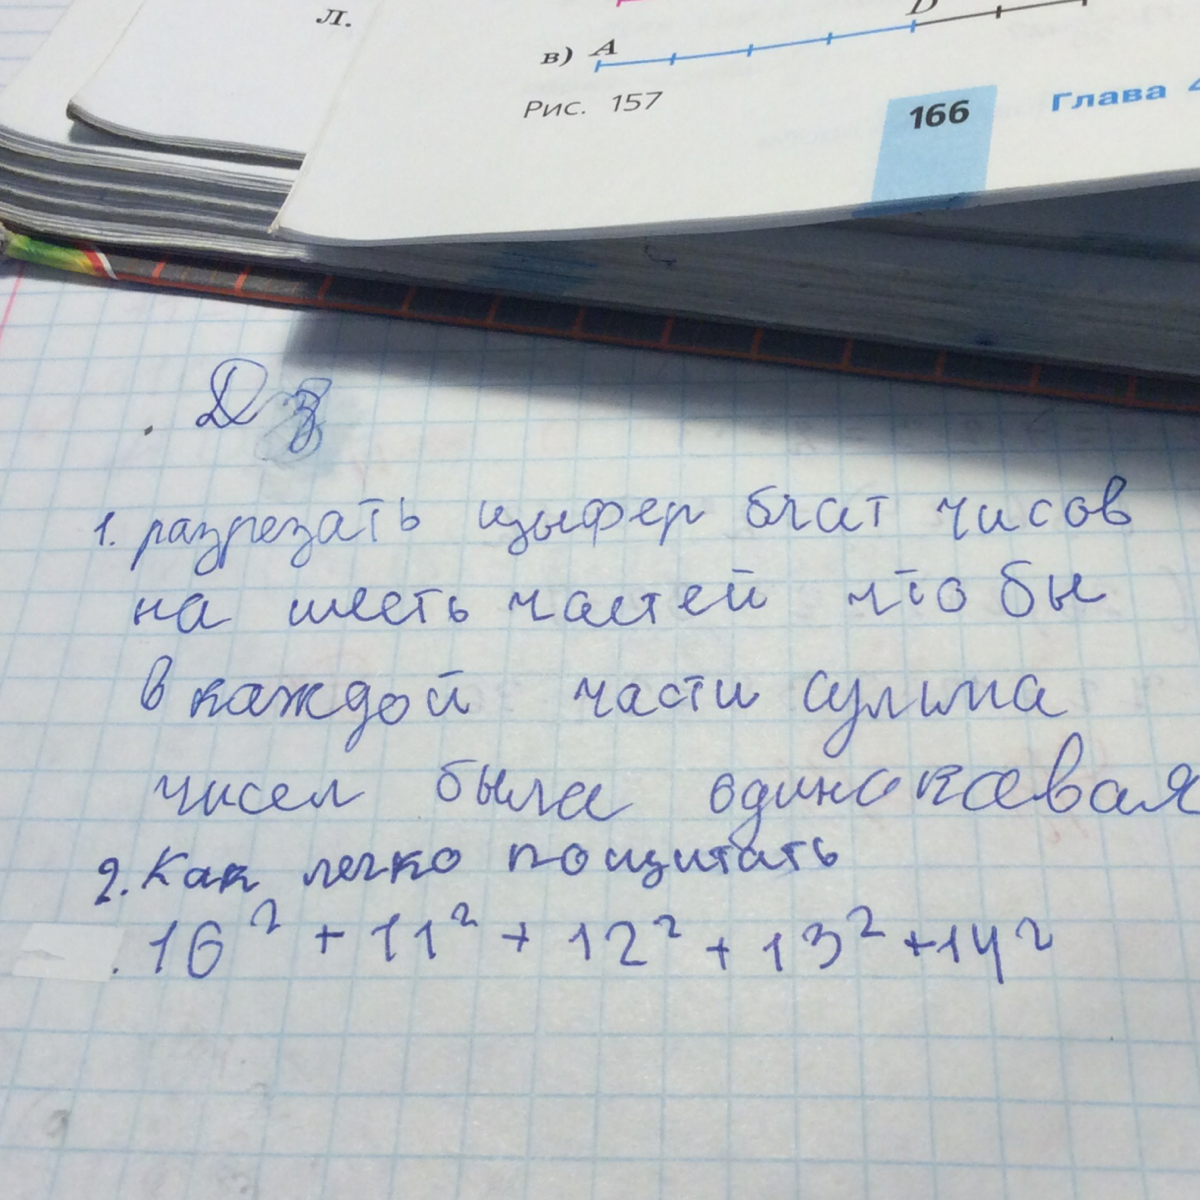 Л.
в) A D
Рис. 157
166 Глава 4
Дз
1. разрезать цыферблат чисов
на шесть частей что бы
в каждой части сумма
чисел была одинокавая
2. Как легко пощитать
16² + 11² + 12² + 13² + 14²